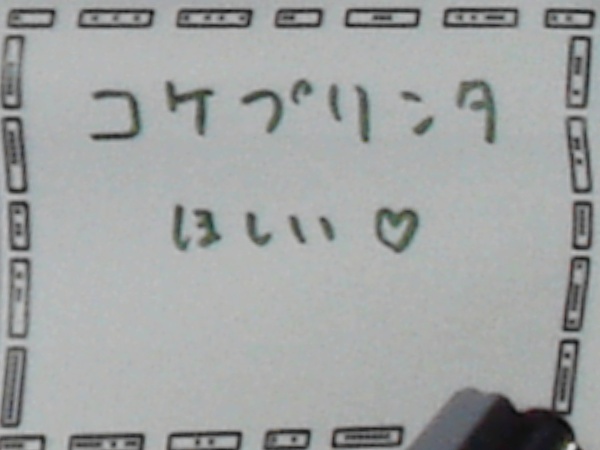 コケプリンタ
ほしい♡